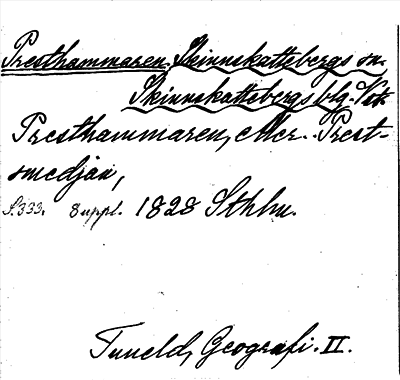 Presthammaren. Skinnskattebergs sn.
Skinnskattebergs blg. Vstm.
Presthammaren, eller Prest-
smedjan,
S. 333. 8 uppl. 1828 Sthlm.
Tuneld, Geografi. II.